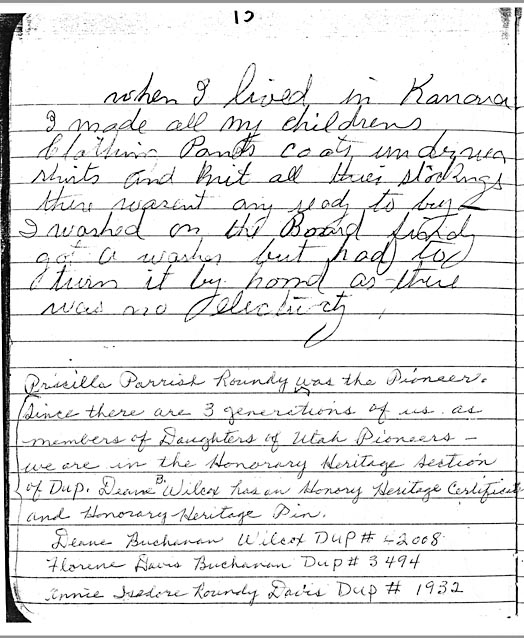 12
when I lived in Kanarra
I made all my childrens
Clothing Pants coats underwear
shirts and knit all thier stockings
there warent any ready to buy
I washed on the Board finaly
got a washer but had to
turn it by hand as there
was no Electricity
Priscilla Parrish Roundy was the Pioneer.
Since there are 3 generations of us as
members of Daughters of Utah Pioneers –
we are in the Honorary Heritage Section
of Dup. Deane B. Wilcox has an Honory Heritage Certificate
and Honorary Heritage Pin.
Deane Buchanan Wilcox DUP # 42008
Florene Davis Buchanan Dup # 3494
Annie Isadore Roundy Davis Dup # 1932